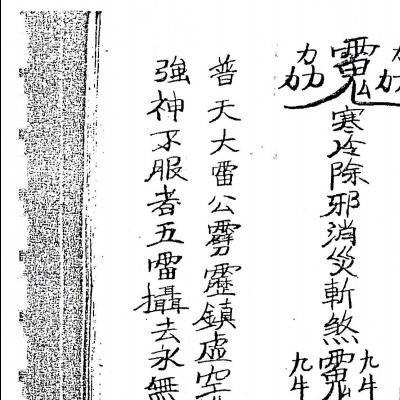 寒冷除邪消災斬煞
九牛
九牛
普天大雷公霹靂鎮虛空
強神不服者五雷攝去永無